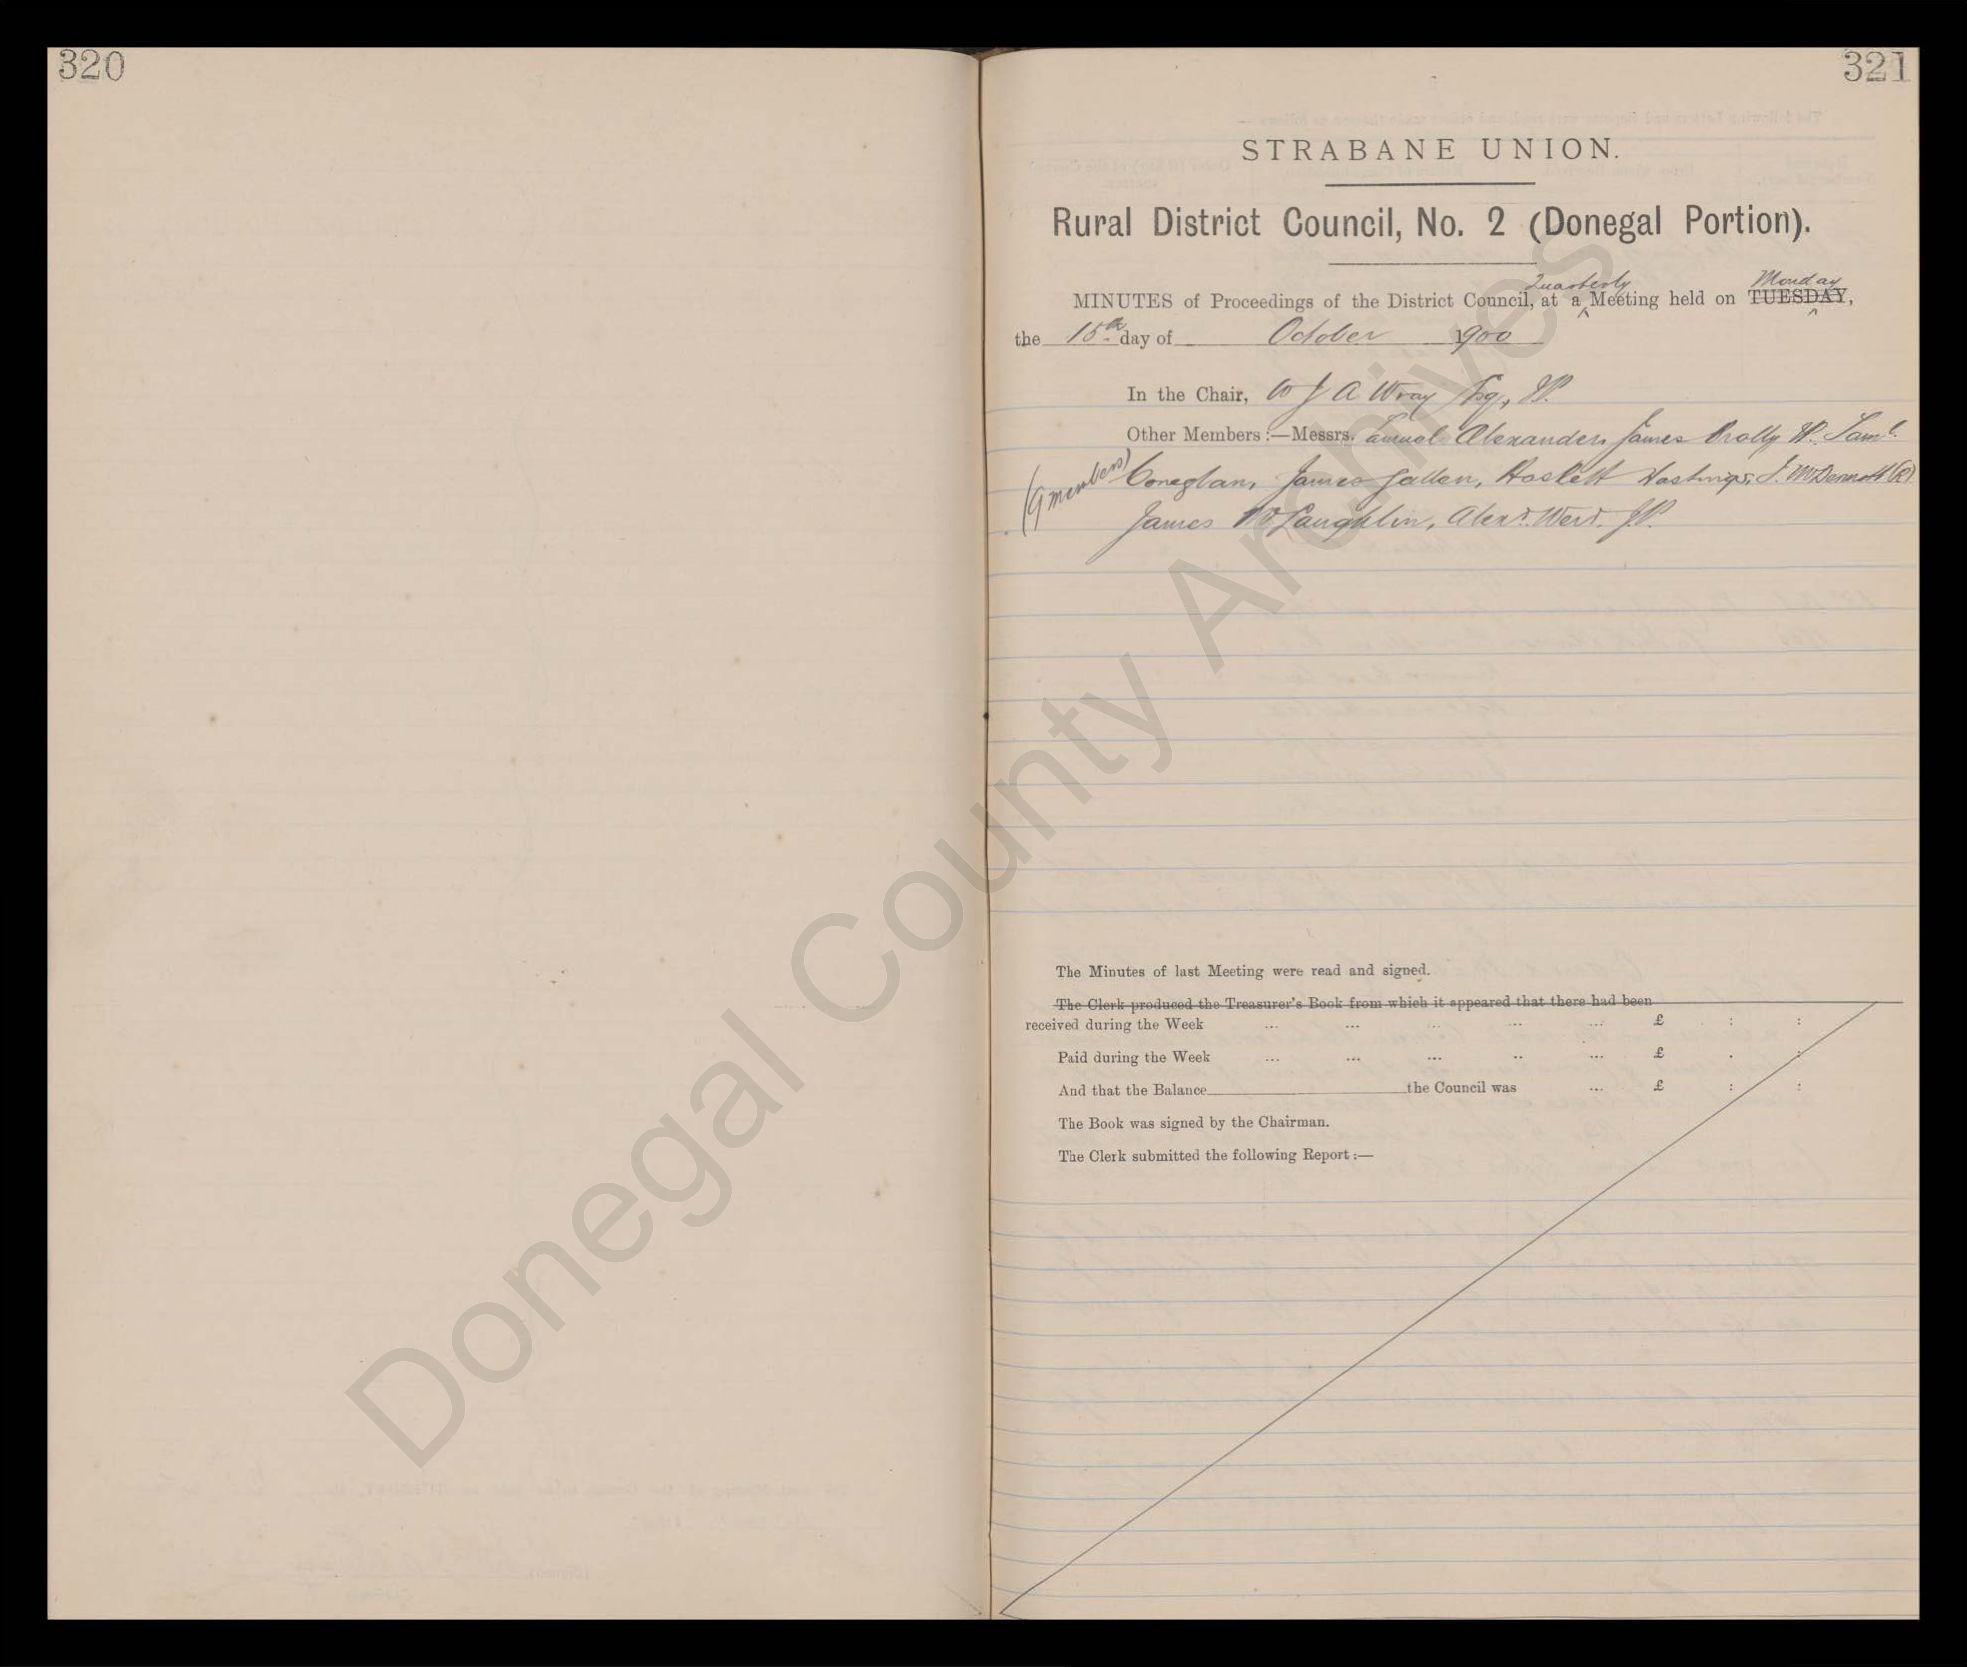 320
321
STRABANE UNION.
Rural District Council, No. 2 (Donegal Portion).
Quarterly Monday
MINUTES of Proceedings of the District Council, at a Meeting held on TUESDAY,
the 15th day of October 1900
In the Chair, W J A Wray Esq., JP.
Other Members:—Messrs. Samuel Alexander, James Brolly JP. Saml.
(9 members) Coneglan, James Gallen, Haslett Hastings, J. McDermott (R)
James McLaughlin, Alexr. Weir. JP.
The Minutes of last Meeting were read and signed.
The Clerk produced the Treasurer's Book from which it appeared that there had been
received during the Week ... ... ... ... ... £ : :
Paid during the Week ... ... ... .. ... £ . :
And that the Balance the Council was ... £ : :
The Book was signed by the Chairman.
The Clerk submitted the following Report:—
Donegal County Archives